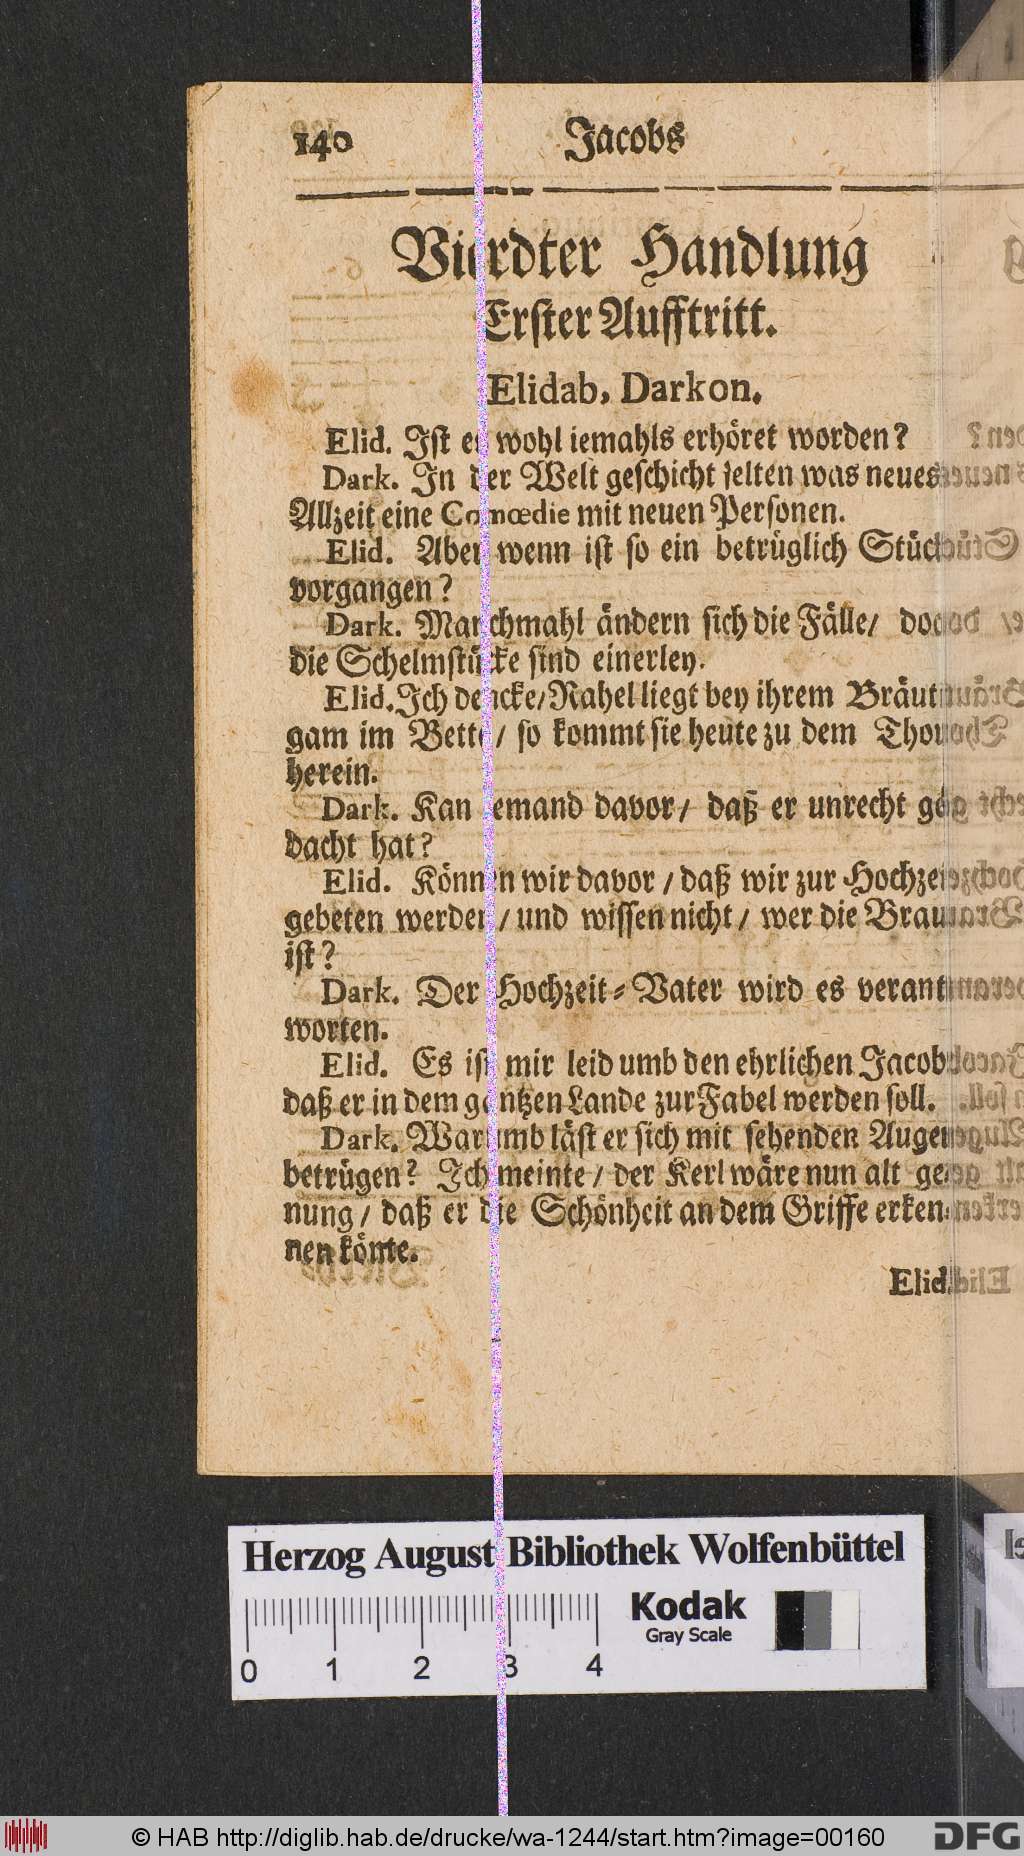 140 Jacobs
Vierdter Handlung
Erster Aufftritt.
Elidab, Darkon.
Elid. Ist es wohl iemahls erhöret worden?
Dark. In der Welt geschicht selten was neues
Allzeit eine Comœdie mit neuen Personen.
Elid. Aber wenn ist so ein betrüglich Stück
vorgangen?
Dark. Manchmahl ändern sich die Fälle/ doch
die Schelmstücke sind einerley.
Elid. Ich dencke/ Rahel liegt bey ihrem Bräuti
gam im Bette/ so kommt sie heute zu dem Thor
herein.
Dark. Kan iemand davor/ daß er unrecht ge
dacht hat?
Elid. Können wir davor/ daß wir zur Hochzeit
gebeten werden/ und wissen nicht/ wer die Braut
ist?
Dark. Der Hochzeit-Vater wird es verant
worten.
Elid. Es ist mir leid umb den ehrlichen Jacob
daß er in dem gantzen Lande zur Fabel werden soll.
Dark. Warumb läst er sich mit sehenden Augen
betrügen? Ich meinte/ der Kerl wäre nun alt ge
nung/ daß er die Schönheit an dem Griffe erken
nen könte.
Elid.
Herzog August Bibliothek Wolfenbüttel
Kodak
Gray Scale
0 1 2 3 4
© HAB http://diglib.hab.de/drucke/wa-1244/start.htm?image=00160
DFG